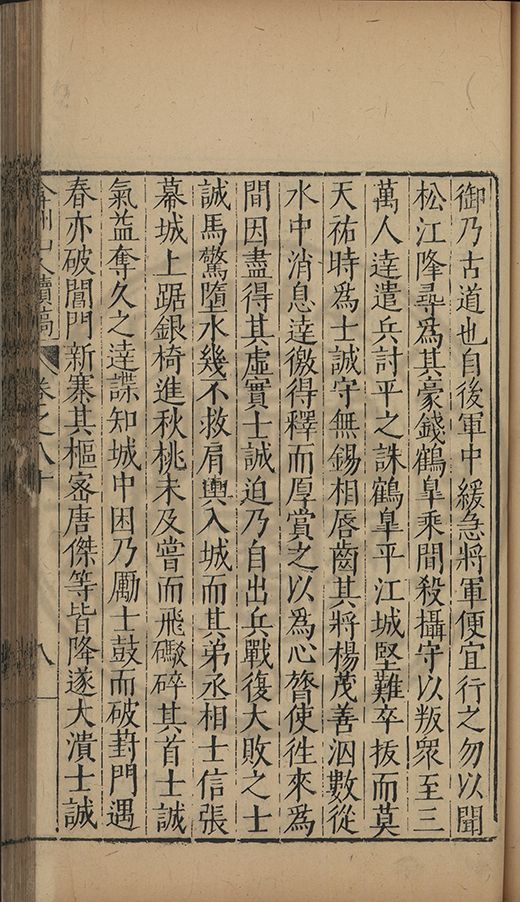 御乃古道也自後軍中緩急將軍便宜行之勿以聞
松江降尋爲其豪錢鶴臯乘間殺攝守以叛衆至三
萬人達遣兵討平之誅鶴臯平江城堅難卒拔而莫
天祐時爲士誠守無錫相唇齒其將楊茂善泅數從
水中消息達徼得釋而厚賞之以爲心膂使徃來爲
間因盡得其虛實士誠迫乃自出兵戰復大敗之士
誠馬驚墮水幾不救肩輿入城而其弟丞相士信張
幕城上踞銀椅進秋桃未及嘗而飛礮碎其首士誠
氣益奪久之達諜知城中困乃勵士鼓而破葑門遇
春亦破閶門新寨其樞宻唐傑等皆降遂大潰士誠
弇州山人續稿 卷之八十 八